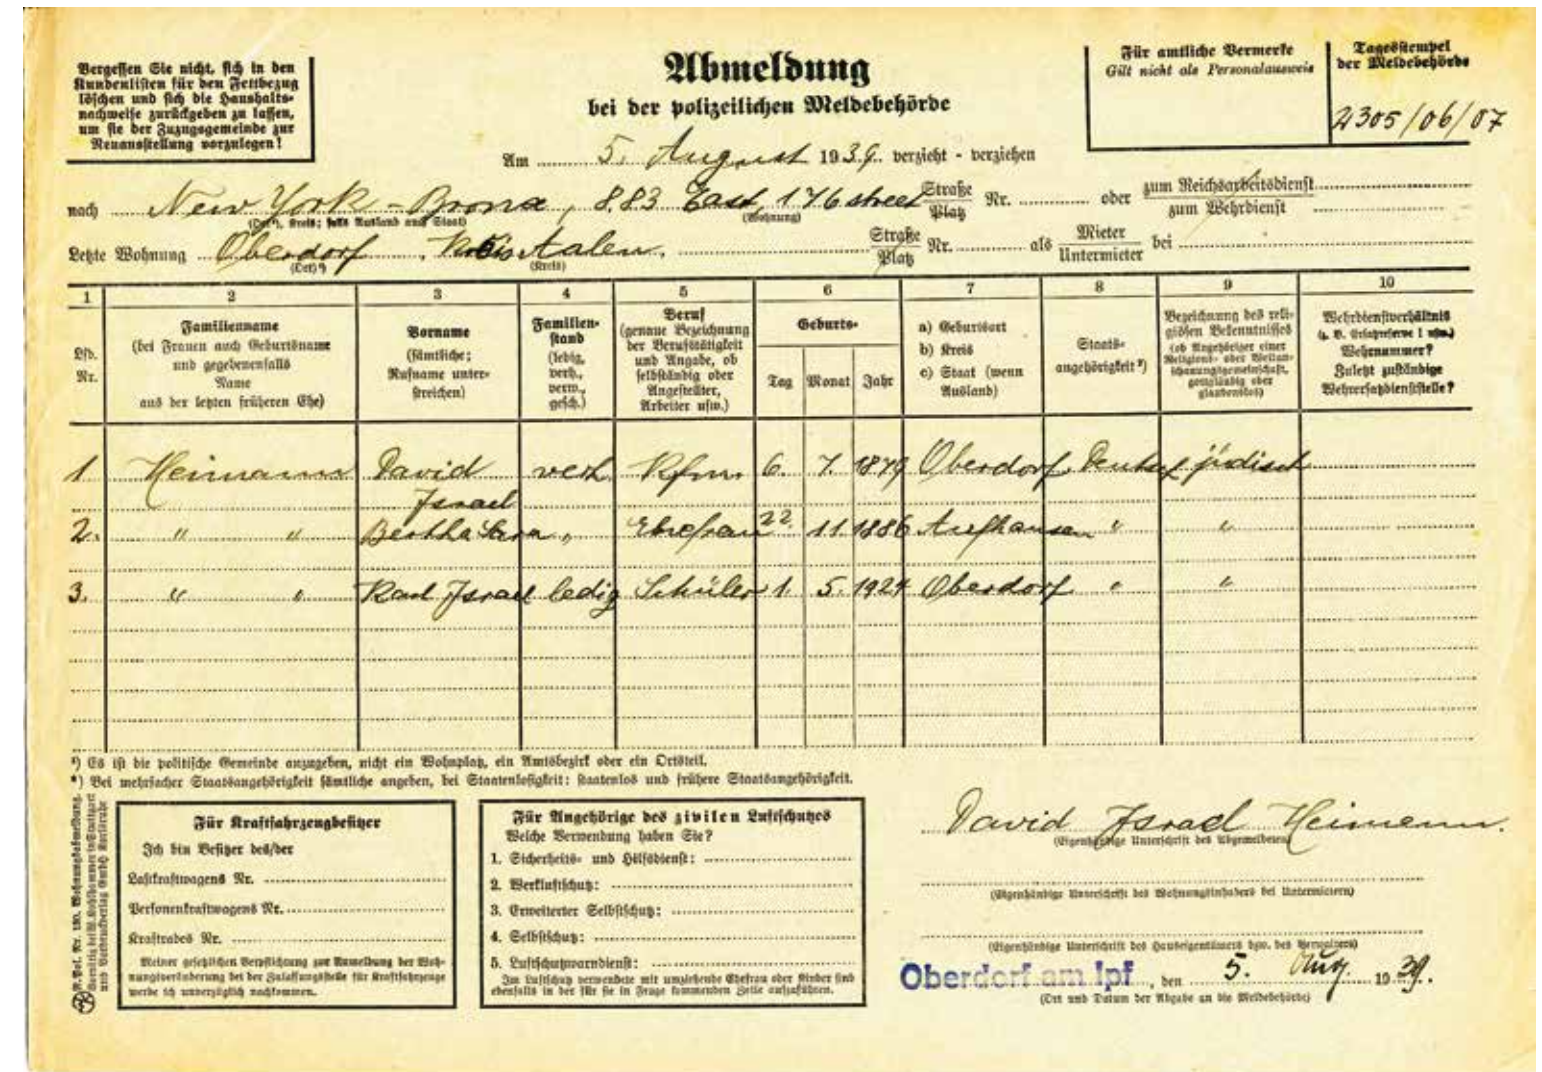 Vergessen Sie nicht, sich in den
Kundenlisten für den Fettbezug
löschen und sich die Haushalts-
nachweise zurückgeben zu lassen,
um sie der Zuzugsgemeinde zur
Neuausstellung vorzulegen!
Abmeldung
bei der polizeilichen Meldebehörde
Für amtliche Vermerke
Gilt nicht als Personalausweis
Tagesstempel
der Meldebehörde
2305/06/07
Am 5. August 1939. verzieht - verziehen
nach New York - Bronx, 883 East, 176 street Straße Platz Nr. oder zum Reichsarbeitsdienst zum Wehrdienst
(Ort ¹), Kreis; falls Ausland auch Staat) (Wohnung)
Letzte Wohnung Oberdorf, Kreis Aalen. Straße Platz Nr. als Mieter Untermieter bei
(Ort) ¹) (Kreis)
1 2 3 4 5 6 7 8 9 10
Lfd. Nr.
Familienname
(bei Frauen auch Geburtsname
und gegebenenfalls
Name
aus der letzten früheren Ehe)
Vorname
(sämtliche;
Rufname unter-
streichen)
Familien-
stand
(ledig,
verh.,
verw.,
gesch.)
Beruf
(genaue Bezeichnung
der Berufstätigkeit
und Angabe, ob
selbständig oder
Angestellter,
Arbeiter usw.)
Geburts-
Tag Monat Jahr
a) Geburtsort
b) Kreis
c) Staat (wenn
Ausland)
Staats-
angehörigkeit ²)
Bezeichnung des reli-
giösen Bekenntnisses
(ob Angehöriger einer
Religions- oder Weltan-
schauungsgemeinschaft,
gottgläubig oder
glaubenslos)
Wehrdienstverhältnis
(z. B. Ersatzreserve I usw.)
Wehrnummer?
Zuletzt zuständige
Wehrersatzdienststelle?
1. Heimann David verh. Kfm. 6. 7. 1879 Oberdorf Deutsch jüdisch
Israel
2. " " Bertha Sara " Ehefrau 22. 11. 1886 Aufhausen " "
3. " " Karl Israel ledig Schüler 1. 5. 1924 Oberdorf " "
¹) Es ist die politische Gemeinde anzugeben, nicht ein Wohnplatz, ein Amtsbezirk oder ein Ortsteil.
²) Bei mehrfacher Staatsangehörigkeit sämtliche angeben, bei Staatenlosigkeit: staatenlos und frühere Staatsangehörigkeit.
Für Kraftfahrzeugbesitzer
Ich bin Besitzer des/der
Lastkraftwagens Nr.
Personenkraftwagens Nr.
Kraftrades Nr.
Meiner gesetzlichen Verpflichtung zur Anmeldung der Woh-
nungsveränderung bei der Zulassungsstelle für Kraftfahrzeuge
werde ich unverzüglich nachkommen.
Für Angehörige des zivilen Luftschutzes
Welche Verwendung haben Sie?
1. Sicherheits- und Hilfsdienst:
2. Werkluftschutz:
3. Erweiterter Selbstschutz:
4. Selbstschutz:
5. Luftschutzwarndienst:
Im Luftschutz verwendete mit umziehende Ehefrau oder Kinder sind
ebenfalls in der für sie in Frage kommenden Zeile aufzuführen.
David Israel Heimann.
(Eigenhändige Unterschrift des Abgemeldeten)
(Eigenhändige Unterschrift des Wohnungsinhabers bei Untermietern)
(Eigenhändige Unterschrift des Hauseigentümers bzw. des Verwalters)
Oberdorf am Ipf, den 5. Aug. 1939.
(Ort und Datum der Abgabe an die Meldebehörde)